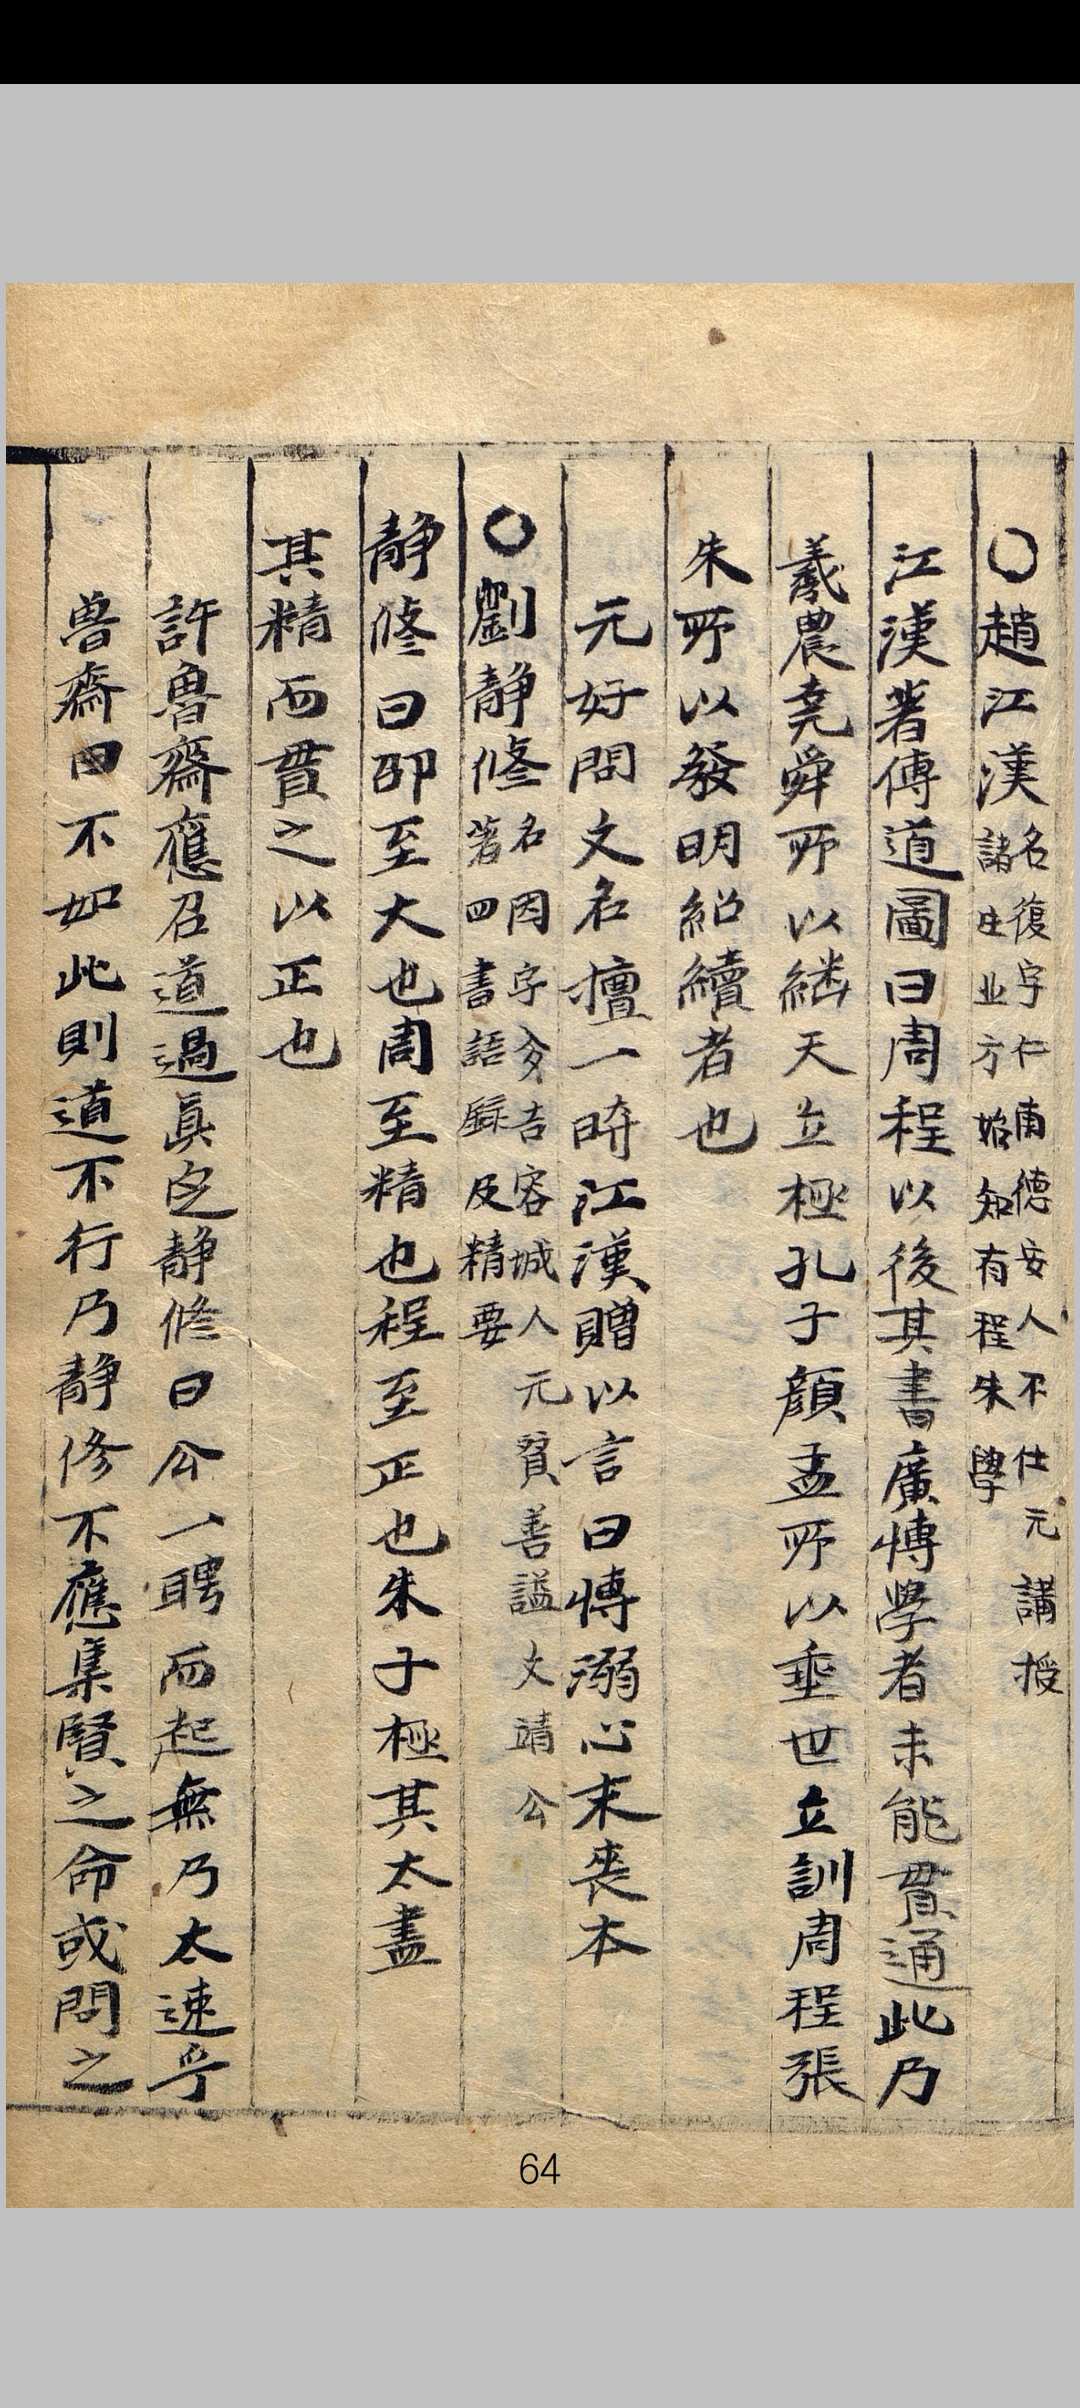 ○趙江漢名復字仁甫德安人不仕元講授
諸生业方始知有程朱學
江漢著傳道圖曰周程以後其書廣博學者未能貫通此乃
羲農堯舜所以繼天立極孔子顔孟所以垂世立訓周程張
朱所以發明紹續者也
元好問文名擅一時江漢贈以言曰博溺心末喪本
○劉静修名因字夢吉容城人元贊善謚文靖公
著四書語録及精要
静修曰邵至大也周至精也程至正也朱子極其太盡
其精而貫之以正也
許魯齋應召道過真定静修曰公一聘而起無乃太速乎
魯齋曰不如此則道不行乃静修不應集賢之命或問之
64